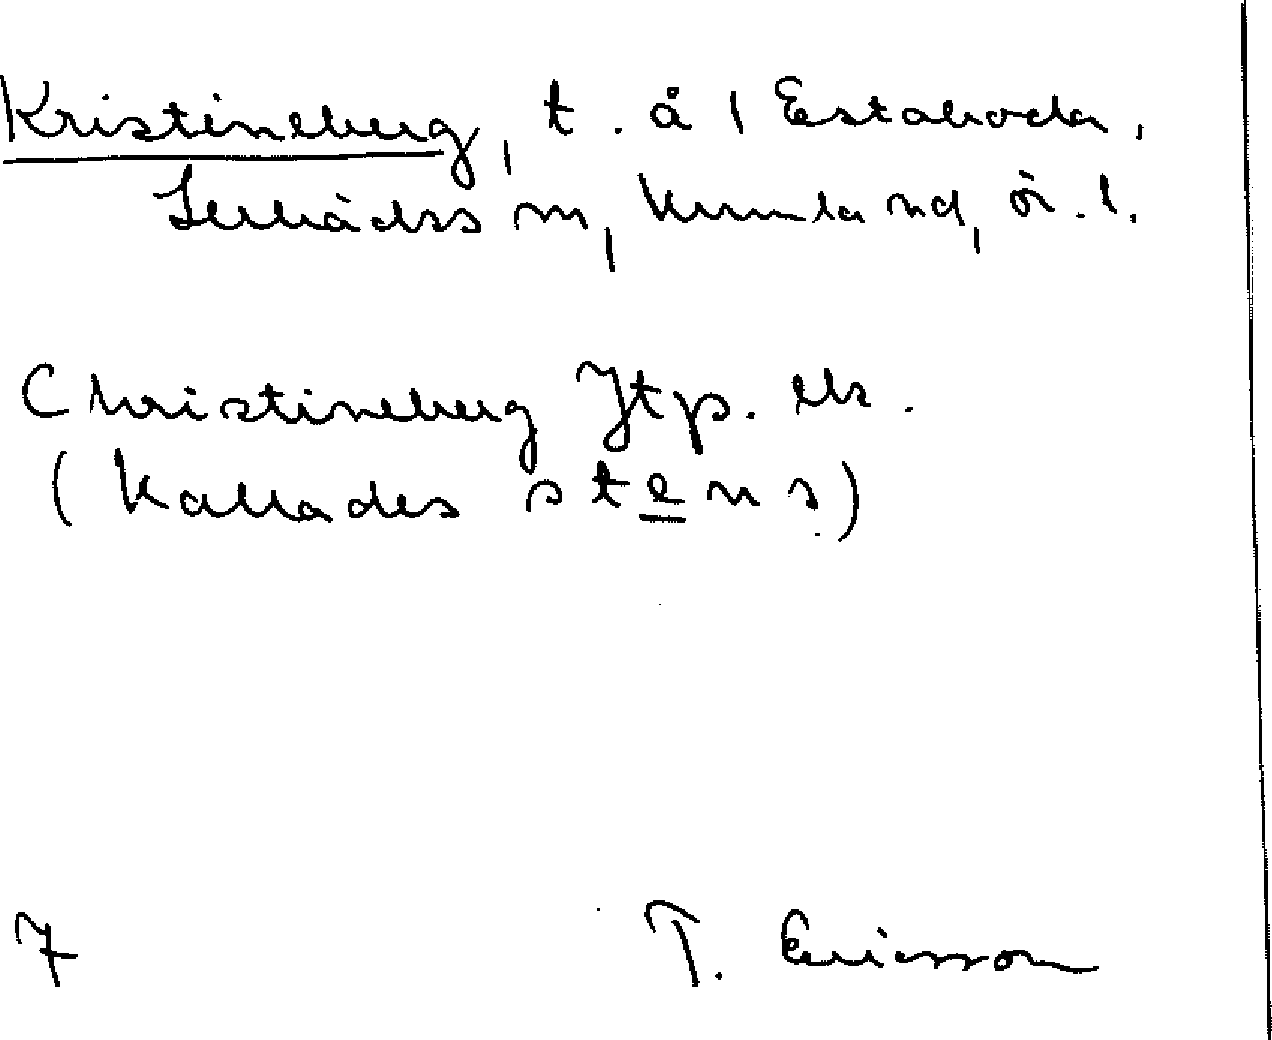 Kristineberg, t. å 1 Estaboda,
Lerbäcks sn, Kumla hd, ör. l.
Christineberg Jtp. Ek.
(Kallades stens)
7 T. Ericsson